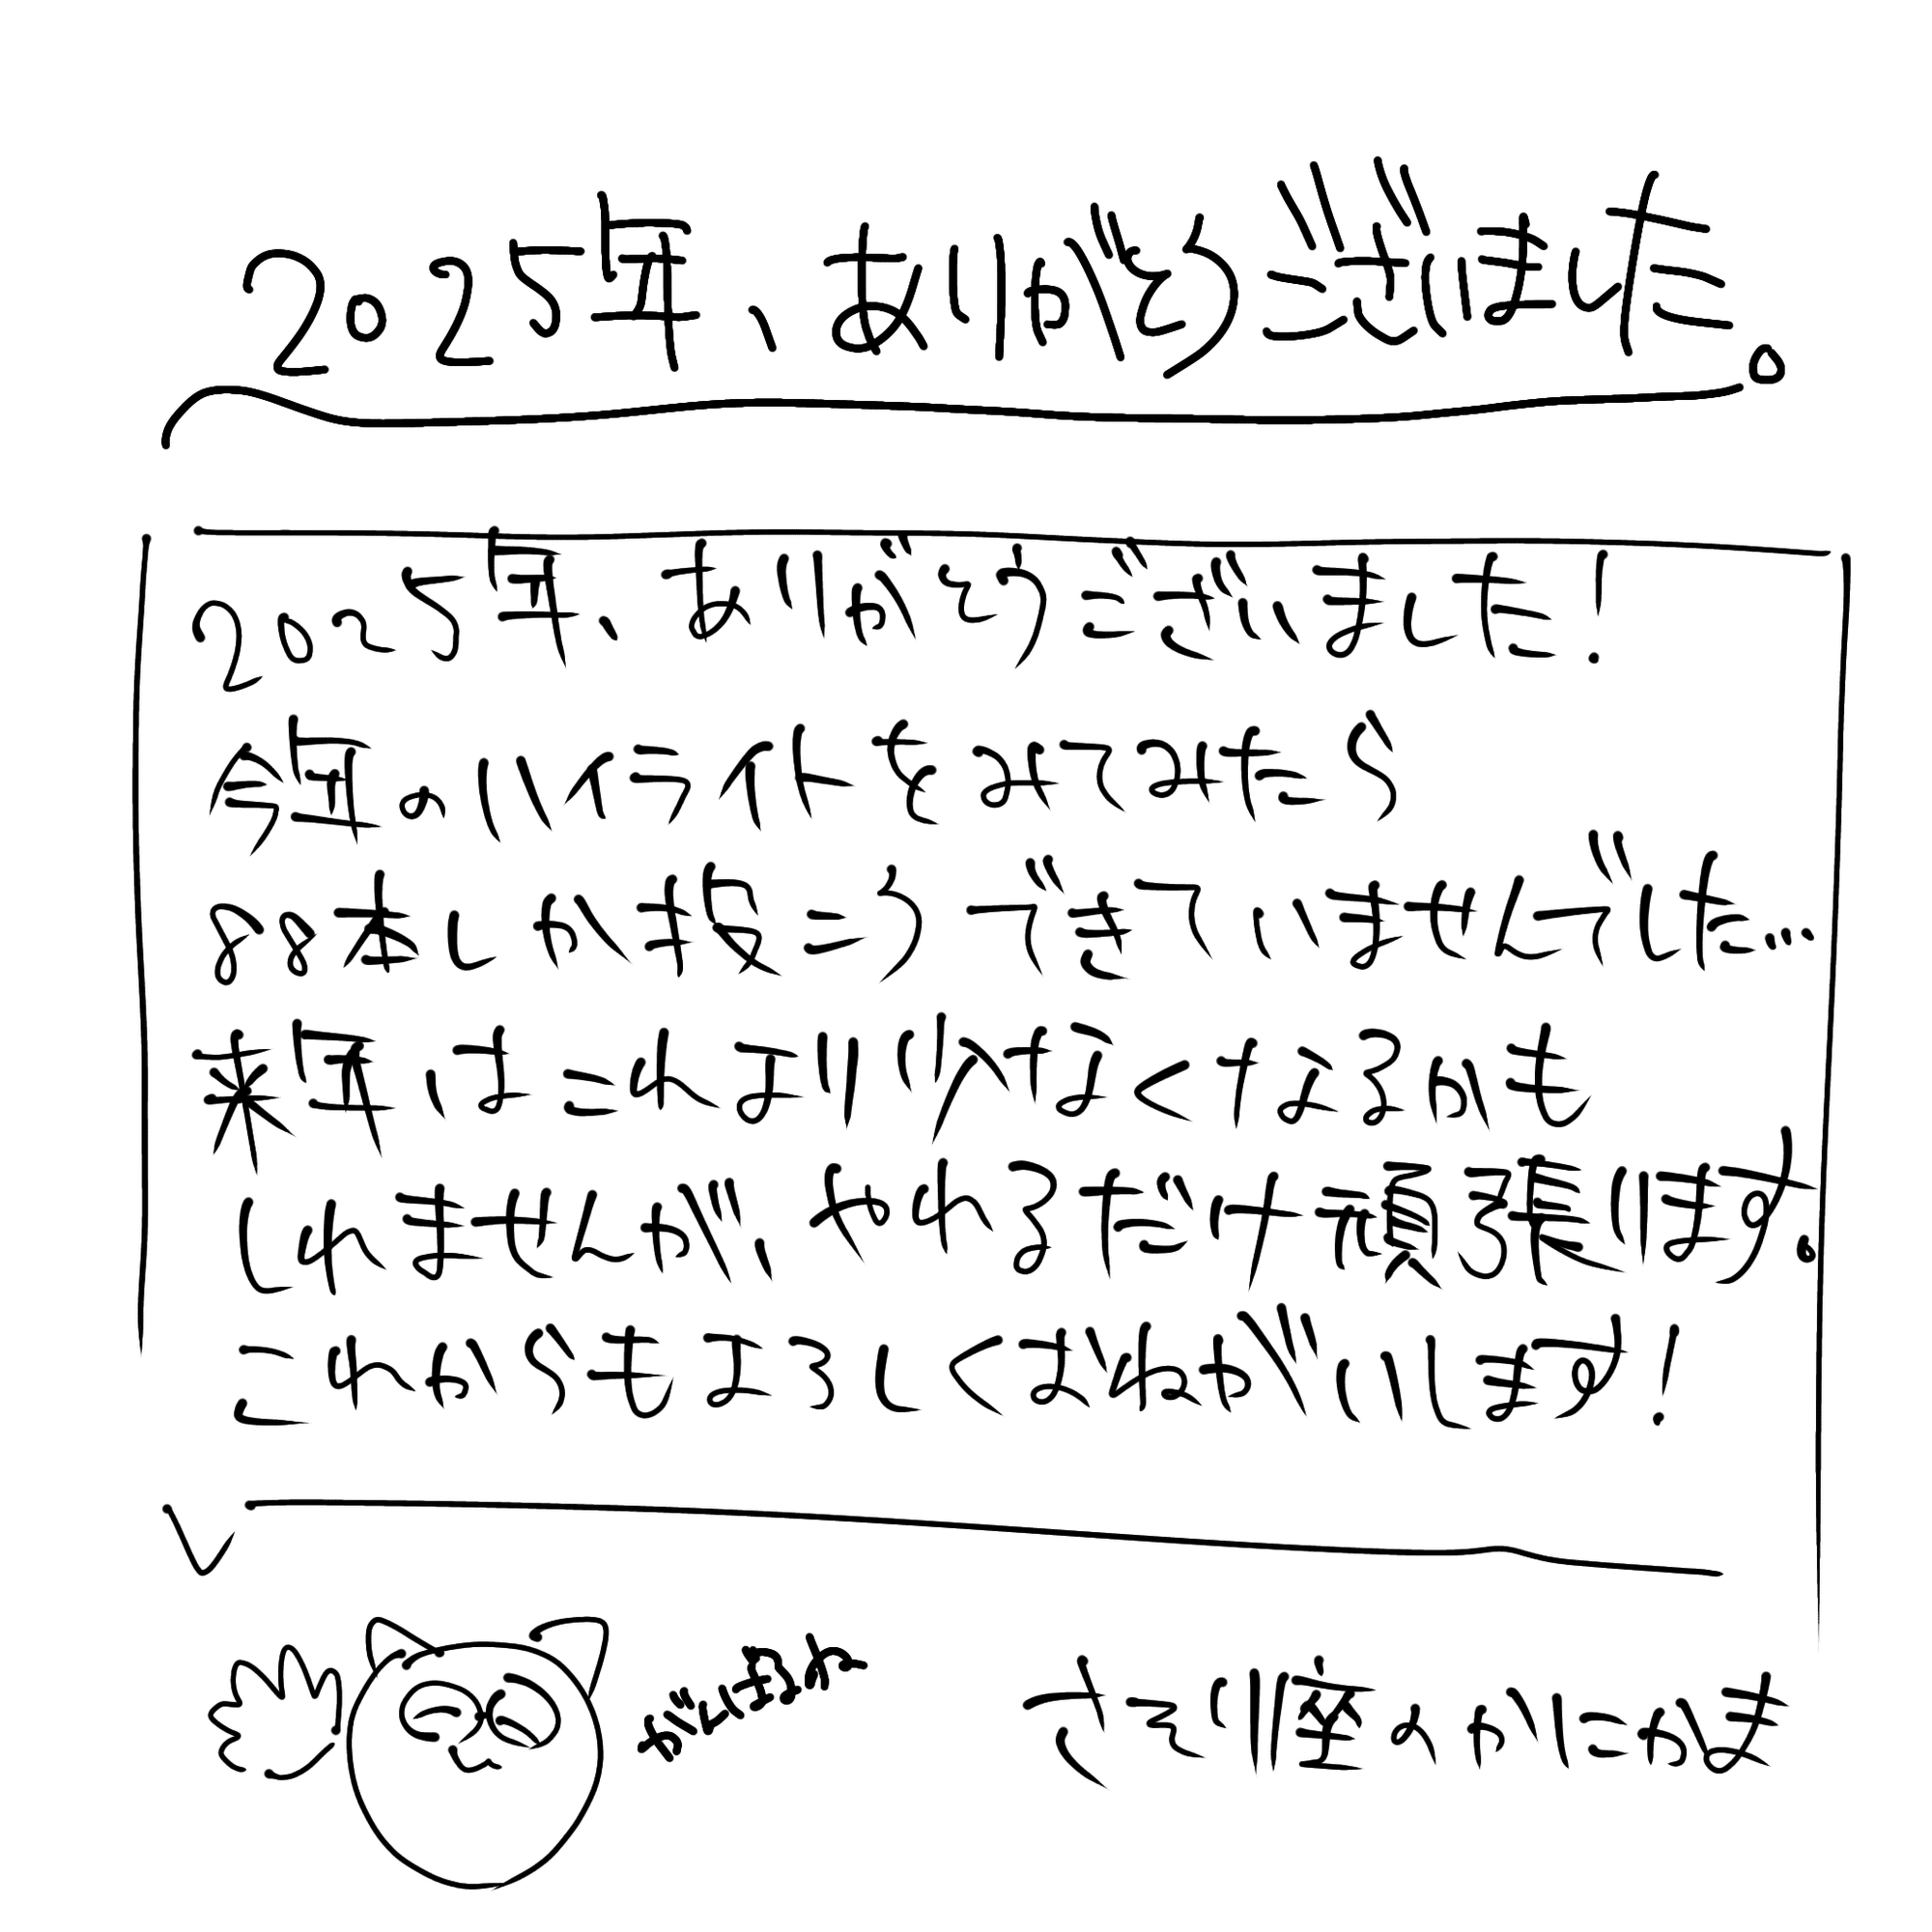 2025年、ありがとうございました。
2025年、ありがとうございました！
今年のハイライトをみてみたら
88本しか投こうできていませんでした…
来年はこれより少なくなるかも
しれませんが、やれるだけ頑張ります。
これからもよろしくおねがいします！
さそり座のかにかま